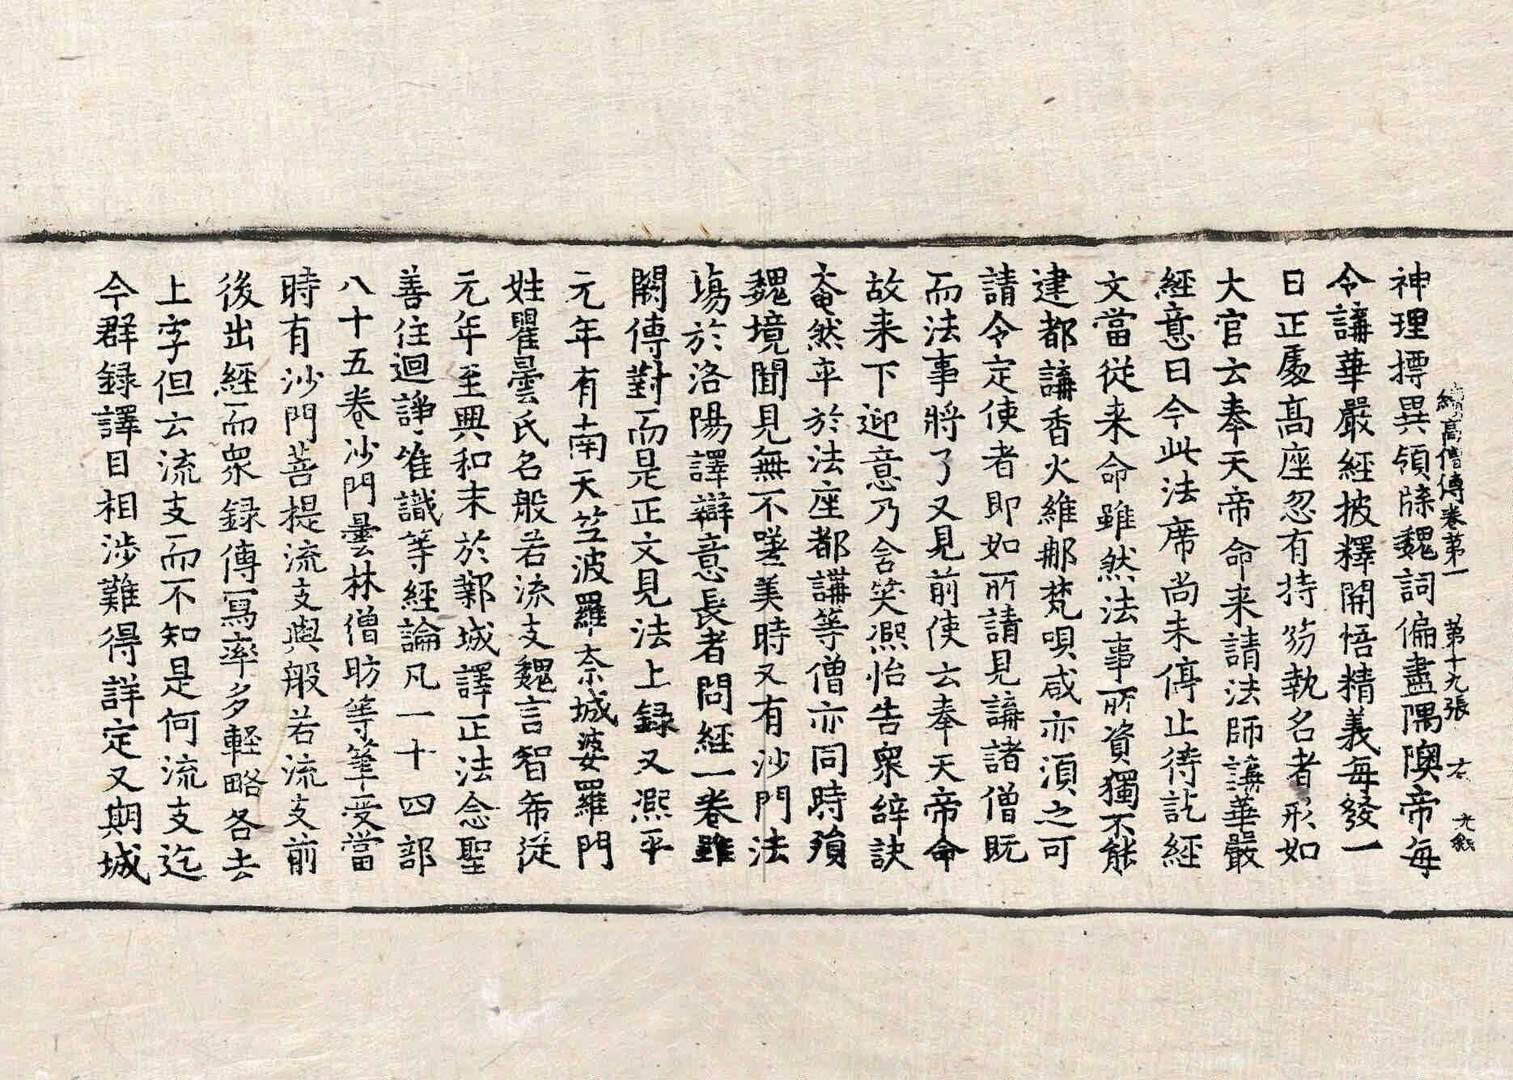 續高僧傳卷第一 第十九張 右
神理摽異領牒魏詞偏盡隅隩帝每
令講華嚴經披釋開悟精義每發一
日正處髙座忽有持笏執名者形如
大官云奉天帝命来請法師講華嚴
經意曰今此法席尚未停止待訖經
文當従来命雖然法事所資獨不能
建都講香火維那梵唄咸亦湏之可
請令定使者即如所請見講諸僧既
而法事將了又見前使云奉天帝命
故来下迎意乃含笑凞怡告衆辝訣
奄然卒於法座都講等僧亦同時殞
魏境聞見無不嘆美時又有沙門法
塲於洛陽譯辯意長者問經一卷雖
闕傳對而是正文見法上録又凞平
元年有南天笁波羅奈城婆羅門
姓瞿曇氏名般若流支魏言智希従
元年至興和末於鄴城譯正法念聖
善住迴諍唯識等經論凡一十四部
八十五卷沙門曇林僧昉等筆受當
時有沙門菩提流支與般若流支前
後出經而衆録傳寫率多輕略各去
上字但云流支而不知是何流支迄
今群録譯目相涉難得詳定又期城